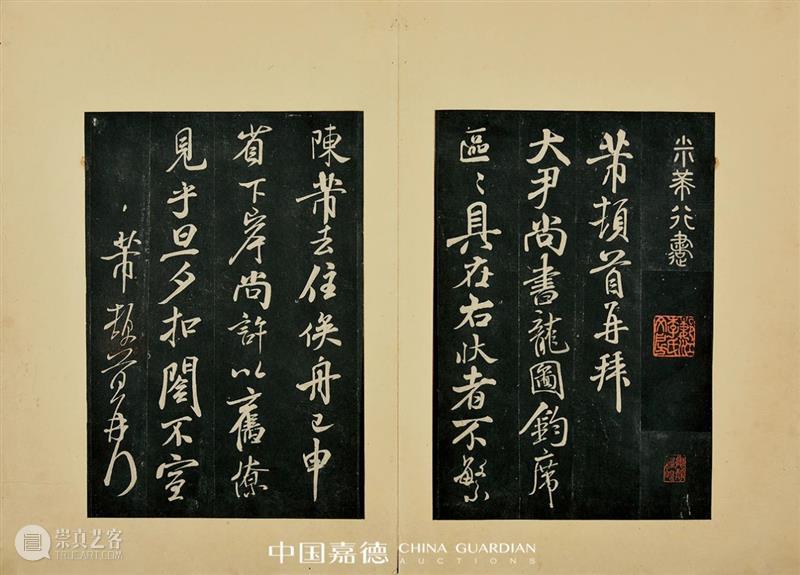 米芾行書
芾頓首再拜
大尹尚書龍圖鈞席
區〻具在右狀者不繁
陳芾去住俟舟已申
省下岸尚許以舊僚
見乎旦夕扣閣不宣
芾頓首再行
崇真艺客
WWW.TRUEART.COM
中国嘉德 CHINA GUARDIAN
AUCTIONS